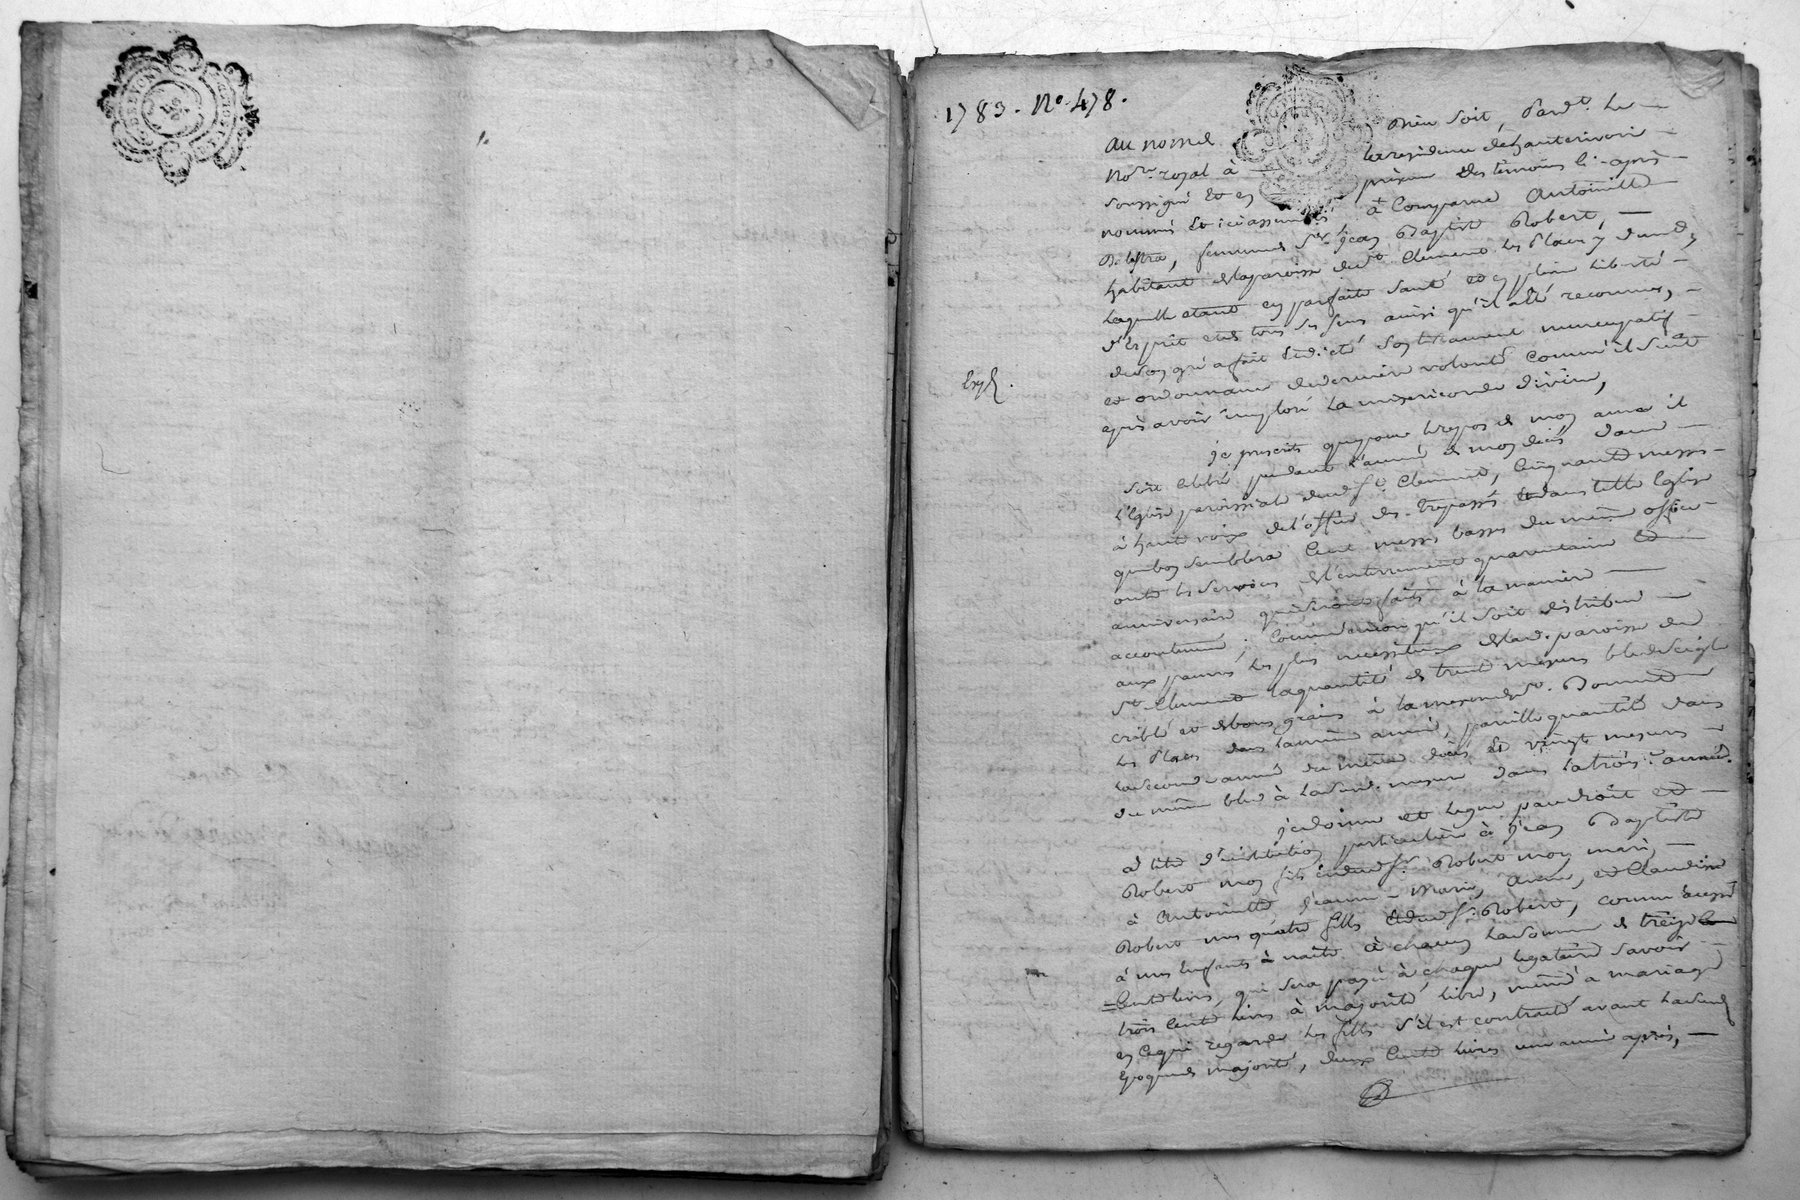 1783. No. 478.
Au nom de Dieu soit, Pard.t Le
No.re royal à la residence de hauterivoire
soussigné et en presence des temoins ci-apres
nommés et icy assemblés à Comparue Antoinette
femme de S.r jean Baptiste Robert,
habitante de la paroisse de St. Clement les Places
Laquelle etant en parfaite santé et en pleine liberté
d'esprit et de tous ses sens ainsi qu'il a été reconnu,
de son gré a fait et dicté son testament nuncupatif
et ordonnance de derniere volonté comme il suit
Exp.é
après avoir imploré la misericorde divine,
je prescrits que pour le repos de mon ame il
soit celebré pendant l'année de mon decès dans
l'Eglise paroissiale dud. St. Clement, cinquante messes
à haute voix de l'office des trepassés et dans telle Eglise
que bon semblera cent messes basses du même office
outre les services de l'enterrement quarantaine et
anniversaire qui seront faits à la maniere
accoutumée, comme encore qu'il soit distribué
aux pauvres les plus necessiteux de lad. paroisse de
St. Clement la quantité de trente mesures bled seigle
criblé et de bons grains à la mesure de
les Places dans la même année, pareille quantité dans
la seconde année du même decès et vingt mesures
du même bled à lad. mesure dans la trois.e année.
je donne et legue par droit et
à titre d'institution particuliere à jean Baptiste
Robert mon fils et dud. S.r Robert mon mari,
à Antoinette jeanne-Marie, Anne, et Claudine
Robert mes quatre filles et dud. S.r Robert, comme aussy
à mes enfants à naitre à chacun la somme de treize
Cents livres, qui sera payé à chaque legataire savoir
trois Cents livres à majorité libre, même à mariage
en ce qui regarde les filles s'il est contracté avant lad.
epoque de majorité, deux Cents livres une année après,